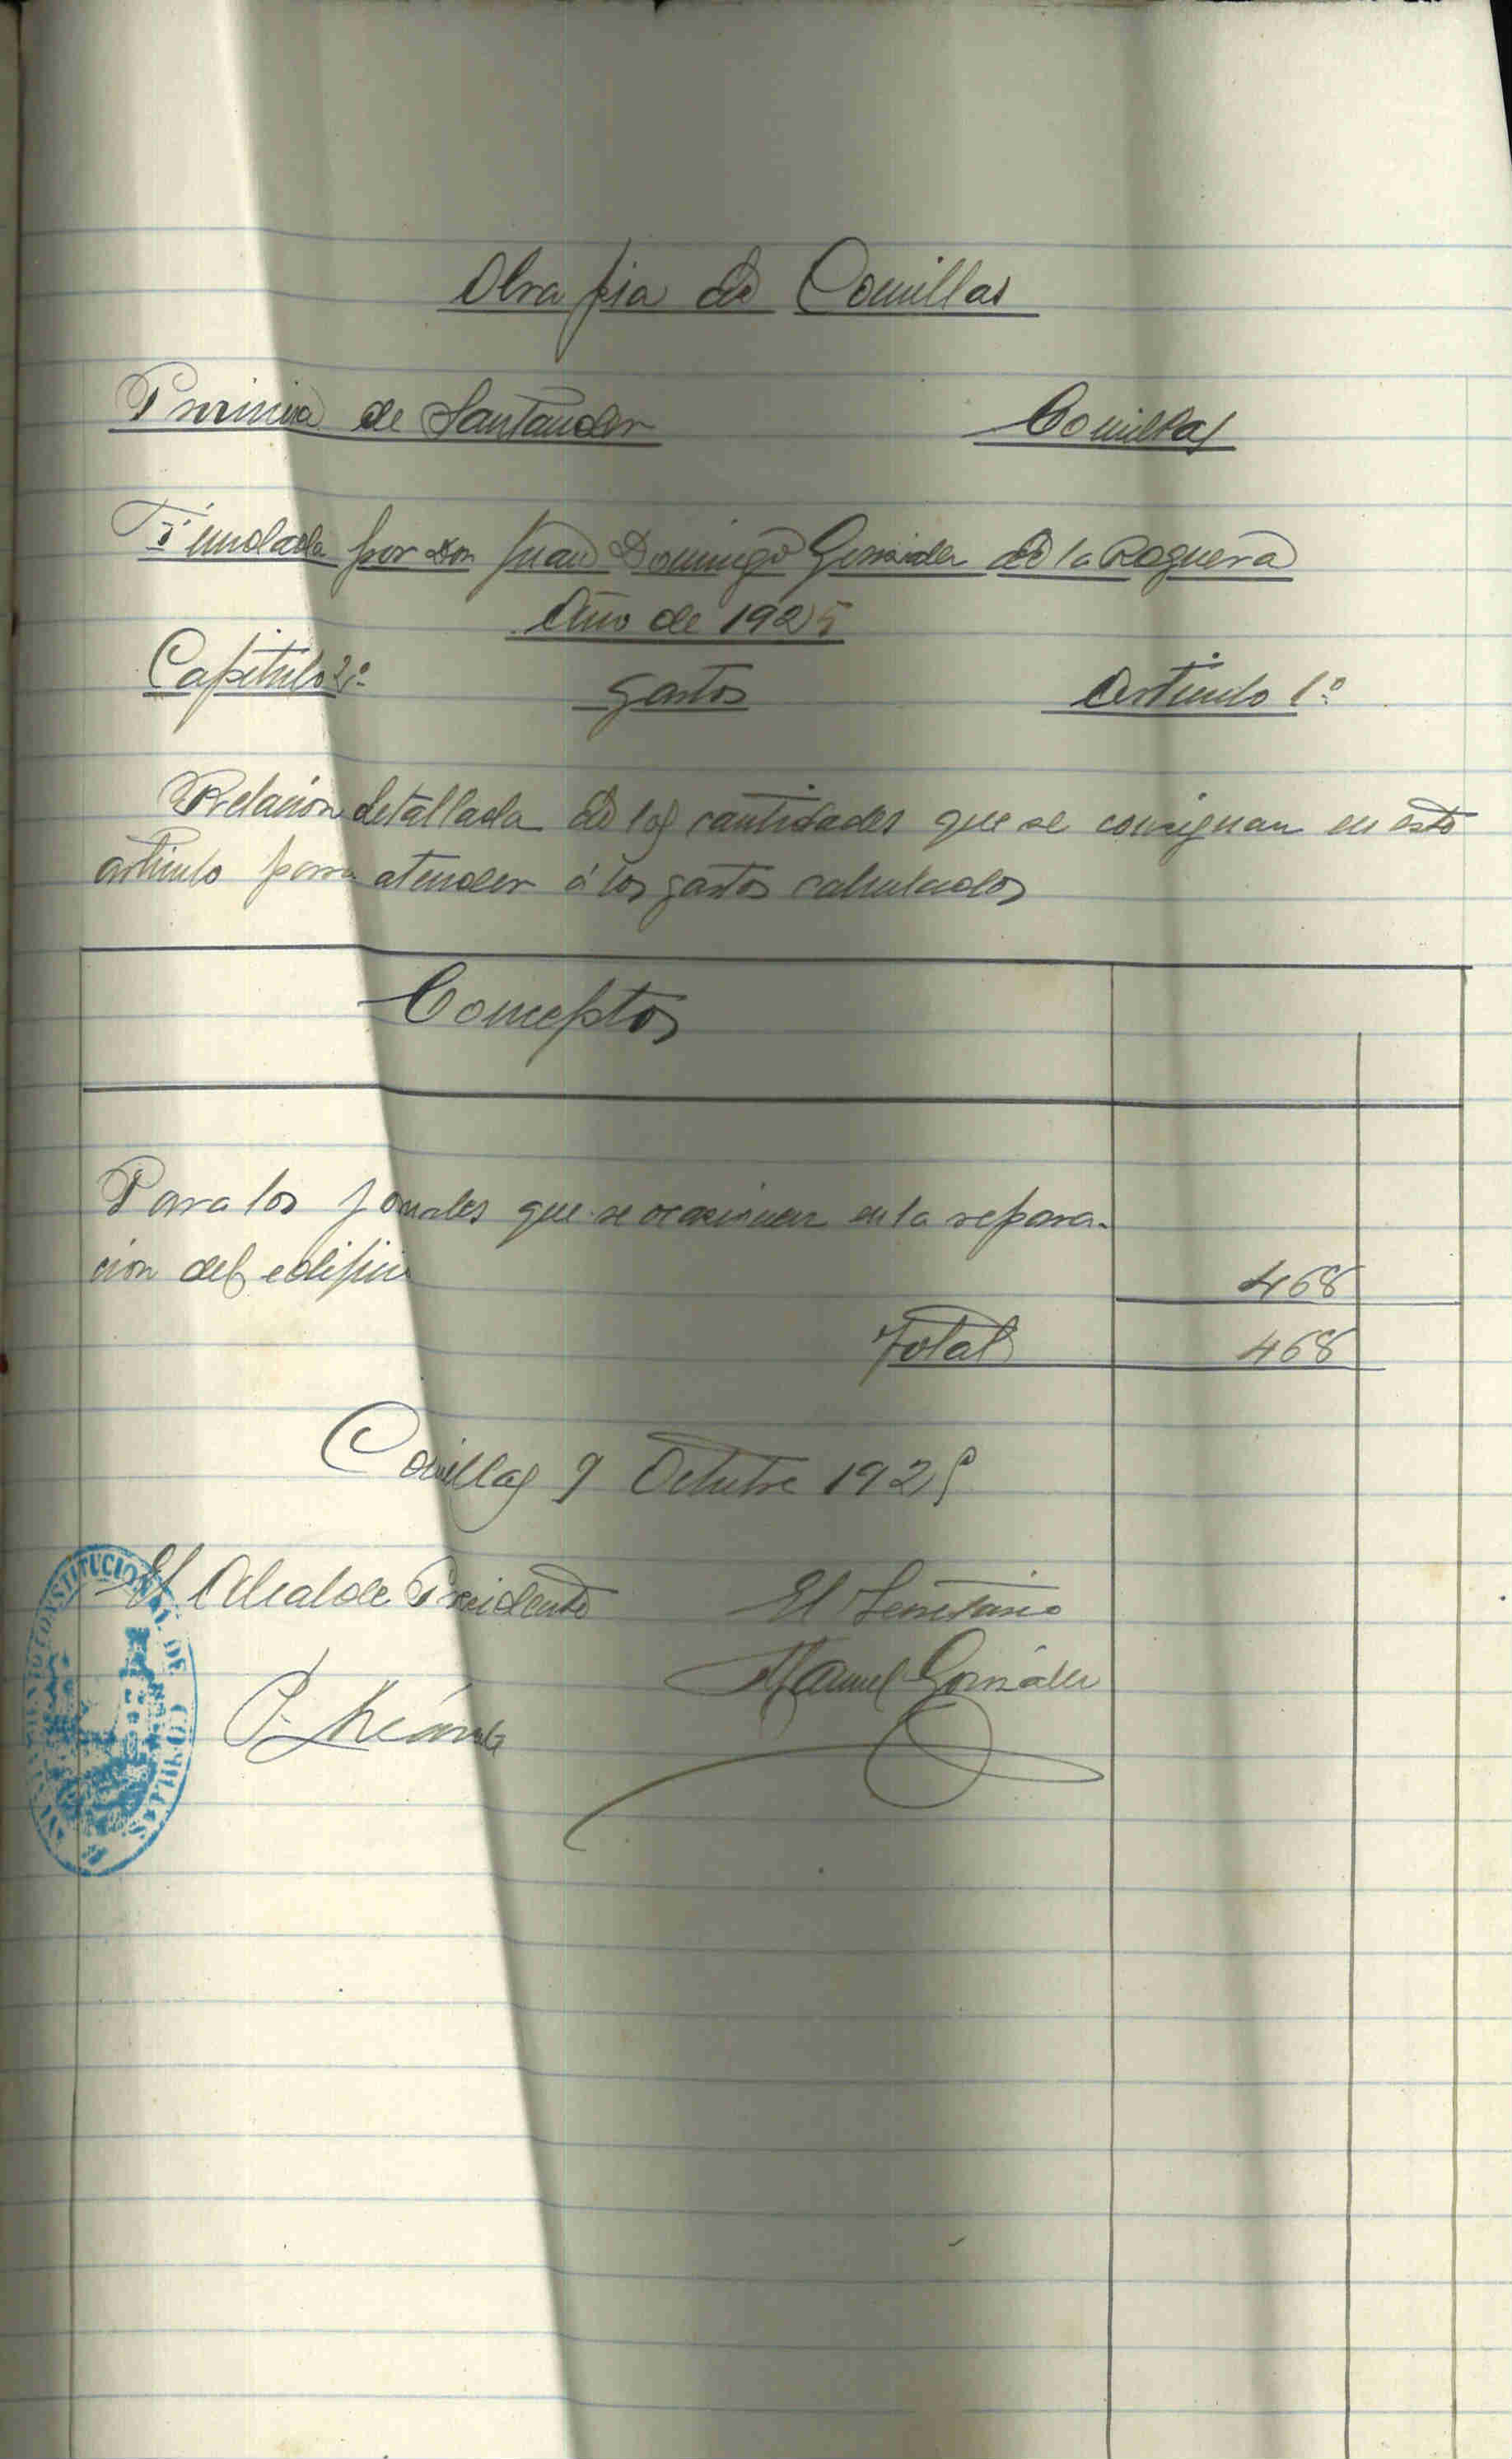 Obra pia de Comillas
Provincia de Santander Comillas
Fundada por Don Juan Domingo González de la Reguera
Año de 1925
Capítulo 2º Gastos Artículo 1º
Relación detallada de las cantidades que se consignan en este
artículo para atender á los gastos calculados
Conceptos
Para los jornales que se ocasionen en la repara-
ción del edificio 468
Total 468
Comillas 9 Octubre 1925
El Alcalde Presidente El Secretario
Manuel González
AYUNTAMIENTO CONSTITUCIONAL DE COMILLAS